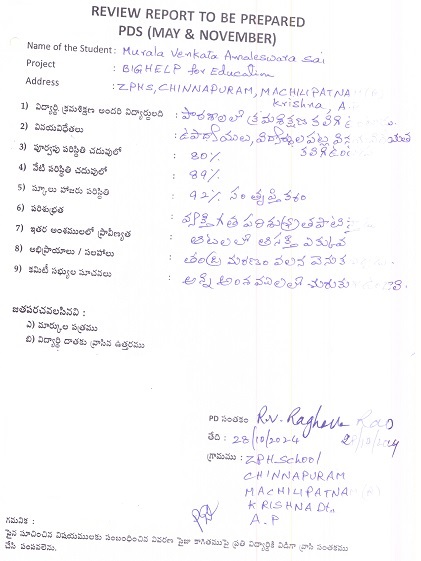 REVIEW REPORT TO BE PREPARED
PDS (MAY & NOVEMBER)
Name of the Student : Murala Venkata Amaleswara Sai
Project : BIGHELP for Education
Address : ZPHS, CHINNAPURAM, MACHILIPATNAM
Krishna, A.
1) విద్యార్థి క్రమశిక్షణ అందరి విద్యార్థులది : పాఠశాలలో క్రమశిక్షణ కలిగి
2) వినయవిధేతలు : ఉపాధ్యాయులు, విద్యార్థులపట్ల
కలిగి
3) పూర్వపు పరిస్థితి చదువులో : 80%
4) నేటి పరిస్థితి చదువులో : 89%
5) స్కూలు హాజరు పరిస్థితి : 92% సంతృప్తికరం
6) పరిశుభ్రత : వ్యక్తిగత పరిశుభ్రత
7) ఇతర అంశములలో ప్రావీణ్యత : ఆటలలో ఆసక్తి ఎక్కువ
8) అభిప్రాయాలు / సలహాలు : తండ్రి మరణం వలన వెనుక
9) కమిటీ సభ్యుల సూచనలు : అన్ని అంశములలో చురుకు
జతపరచవలసినవి :
ఎ) మార్కుల పత్రము
బి) విద్యార్థి దాతకు వ్రాసిన ఉత్తరము
PD సంతకం : R.V. Raghava Rao
తేది : 28/10/2024 28/10/2024
గ్రామము : ZPH School
CHINNAPURAM
MACHILIPATNAM
KRISHNA Dt.
A.P
గమనిక :
పైన సూచించిన విషయములకు సంబంధించిన వివరణ పైజా కాగితముపై ప్రతి విద్యార్థికి విడిగా వ్రాసి సంతకము
చేసి పంపవలెను.